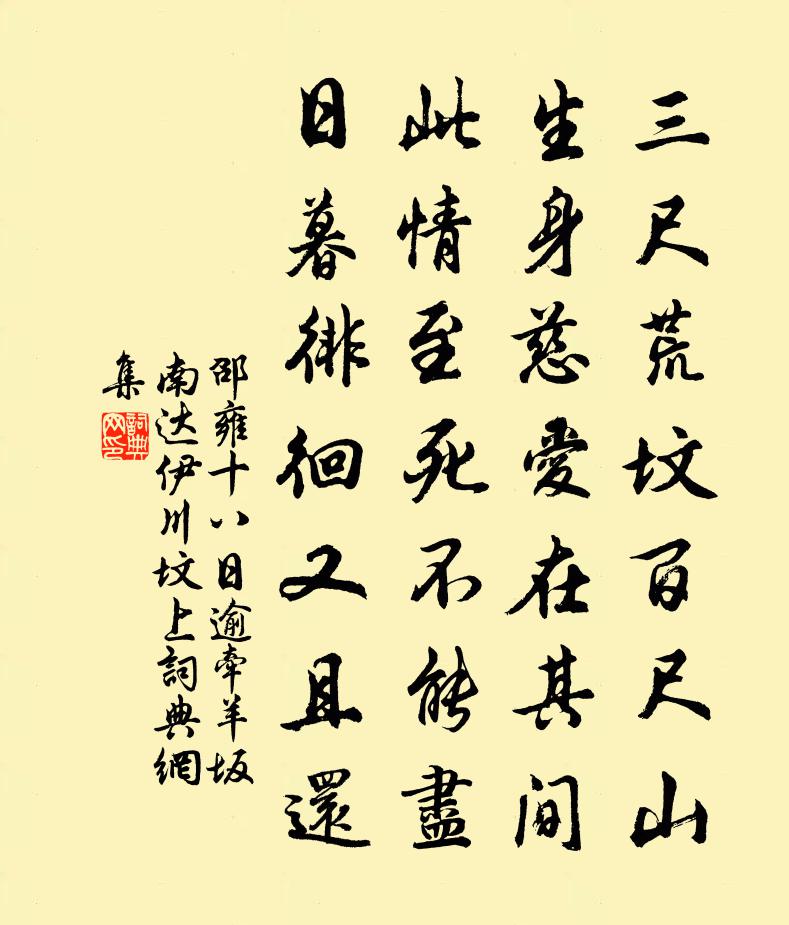 三尺荒坟百尺山
生身慈愛在其間
此情至死不能盡
日暮徘徊又且還
邵雍十八日逾牽羊坂
南达伊川坟上詞典網
集
詞典
网印